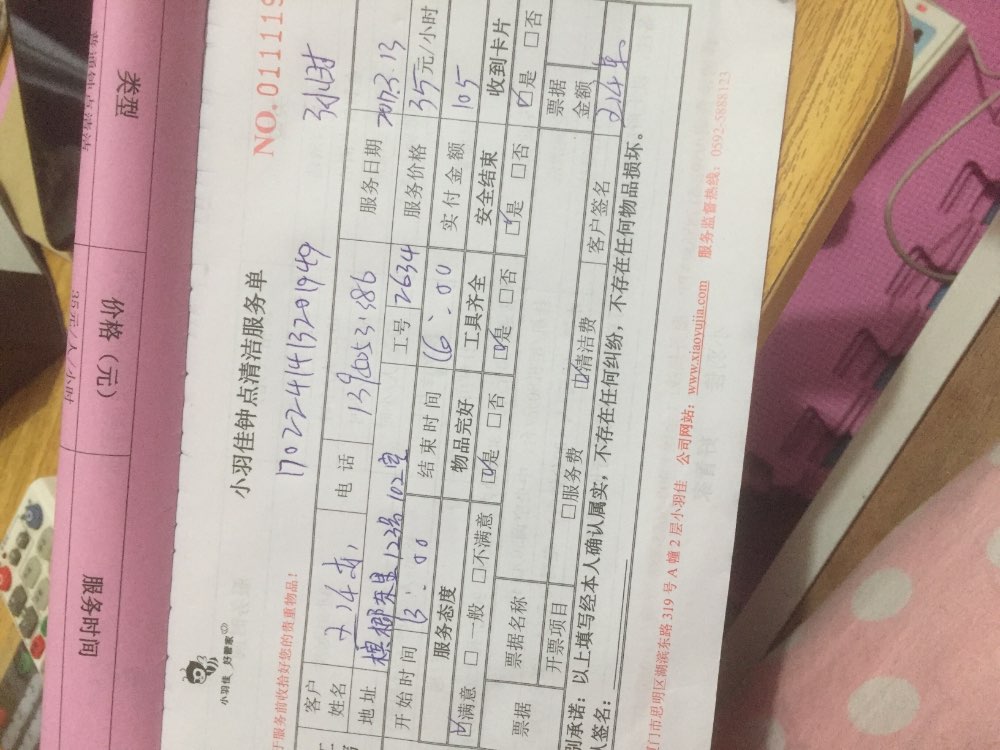 类型
价格（元）
35元/人/小时
服务时间
小羽佳 好管家
小羽佳钟点清洁服务单
NO.011119
于服务前收拾好您的贵重物品！
1702241413201949
3小时
客户姓名
电话 13920531386
服务日期 2017.3.13
地址
123号102室
工号 2634
服务价格 35元/小时
开始时间 13:00
结束时间 16:00
实付金额 105
服务态度
物品完好
工具齐全
安全结束
收到卡片
☑满意 □一般 □不满意
☑是 □否
☑是 □否
☑是 □否
☑是 □否
票据
票据名称
票据金额
开票项目
□服务费
☑清洁费
客户签名
别承诺：以上填写经本人确认属实，不存在任何纠纷，不存在任何物品损坏。
人签名：
门市思明区湖滨东路 319 号 A 幢 2 层小羽佳 公司网站：www.xiaoyujia.com 服务监督热线：0592-5888123